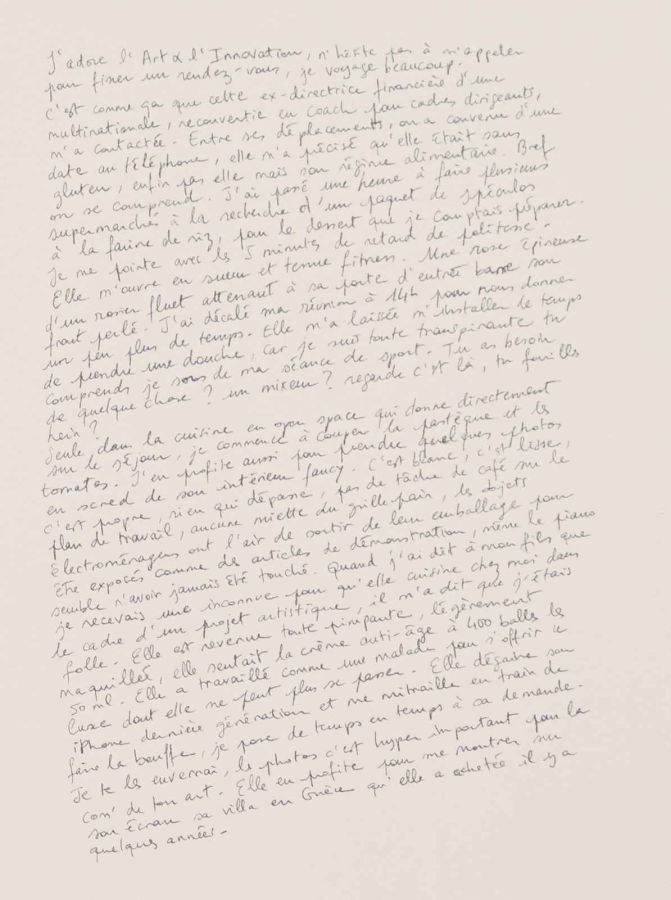 J'adore l'Art & l'Innovation, n'hésite pas à m'appeler
pour fixer un rendez-vous, je voyage beaucoup.
C'est comme ça que cette ex-directrice financière d'une
multinationale, reconvertie en coach pour cadres dirigeants,
m'a contactée. Entre ses déplacements, on a convenu d'une
date au téléphone, elle m'a précisé qu'elle était sans
gluten, enfin pas elle mais son régime alimentaire. Bref
on se comprend. J'ai passé une heure à faire plusieurs
supermarchés à la recherche d'un paquet de spéculos
à la farine de riz, pour le dessert que je comptais préparer.
Je me pointe avec les 5 minutes de retard de politesse.
Elle m'ouvre en sueur et tenue fitness. Une rose épineuse
d'un rosier fluet attenant à sa porte d'entrée barre son
front perlé. J'ai décalé ma réunion à 14h pour nous donner
un peu plus de temps. Elle m'a laissée m'installer le temps
de prendre une douche, car je suis toute transpirante tu
comprends je sors de ma séance de sport. Tu as besoin
de quelque chose ? un mixeur ? regarde c'est là, tu fouilles
hein ?
Seule, dans la cuisine en open space qui donne directement
sur le séjour, je commence à couper la pastèque et les
tomates. J'en profite aussi pour prendre quelques photos
en scred de son intérieur fancy. C'est blanc, c'est lisse,
c'est propre, rien qui dépasse, pas de tâche de café sur le
plan de travail, aucune miette du grille-pain, les objets
électroménagers ont l'air de sortir de leur emballage pour
être exposés comme des articles de démonstration, même le piano
semble n'avoir jamais été touché. Quand j'ai dit à mon fils que
je recevais une inconnue pour qu'elle cuisine chez moi dans
le cadre d'un projet artistique, il m'a dit que j'étais
folle. Elle est revenue toute pimpante, légèrement
maquillée, elle sentait la crème anti-âge à 400 balles les
50 ml. Elle a travaillé comme une malade pour s'offrir ce
luxe dont elle ne peut plus se passer. Elle dégaine son
iPhone dernière génération et me mitraille en train de
faire la bouffe, je pose de temps en temps à sa demande.
Je te les enverrai, les photos c'est hyper important pour la
com' de ton art. Elle en profite pour me montrer sur
son écran sa villa en Grèce qu'elle a achetée il y a
quelques années.